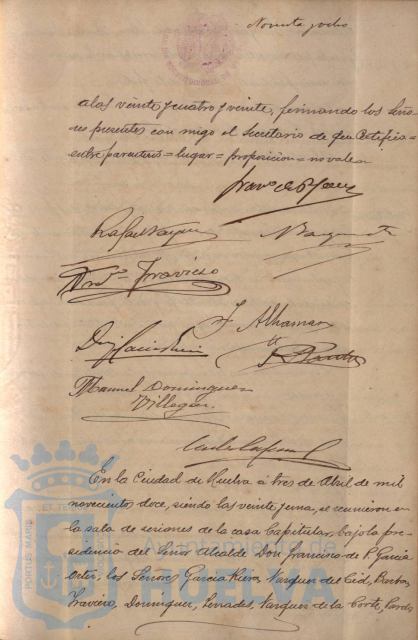 Noventa y ocho
a las veinte y cuatro y veinte, firmando los Seño-
res presentes con migo el Secretario de que Certifico =
entre parentesis = lugar = proposicion = no vale =
Rafael Vazquez
Travieso
J. Alhamar
Manuel Dominguez
Villegas
En la Ciudad de Huelva á tres de Abril de mil
novecientos doce, siendo las veinte y una, se reunieron en
la sala de sesiones de la casa Capitular, bajo la pre-
sidencia del Señor Alcalde Don Francisco de P. Garcia
Ortiz, los Señores Garcia Riero, Vazquez del Cid,
Travieso, Dominguez, Vazquez de la Corte,
Ayuntamiento de
HUELVA
PORTUS MARIS